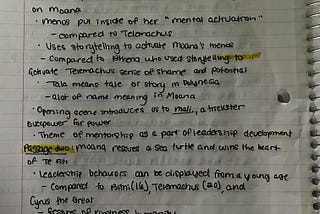 on Moana
• menos put inside of her "mental activation"
- compared to Telemachus
• Uses storytelling to activate Moana's menos
- Compared to Athena who used storytelling to
activate Telemachus sense of shame and potential
• Tala means tale or story in Polynesia
- alot of name meaning in Moana
• Opening scene introduces us to maui, a trickster
overpower for power
• Theme of mentorship as a part of leadership development
Passage two: moana rescues a sea turtle and wins the heart
of Te Fiti
• Leadership behaviors can be displayed from a young age
- Compared to (16), Telemachus (20) and
Cyrus the Great
- of kindness